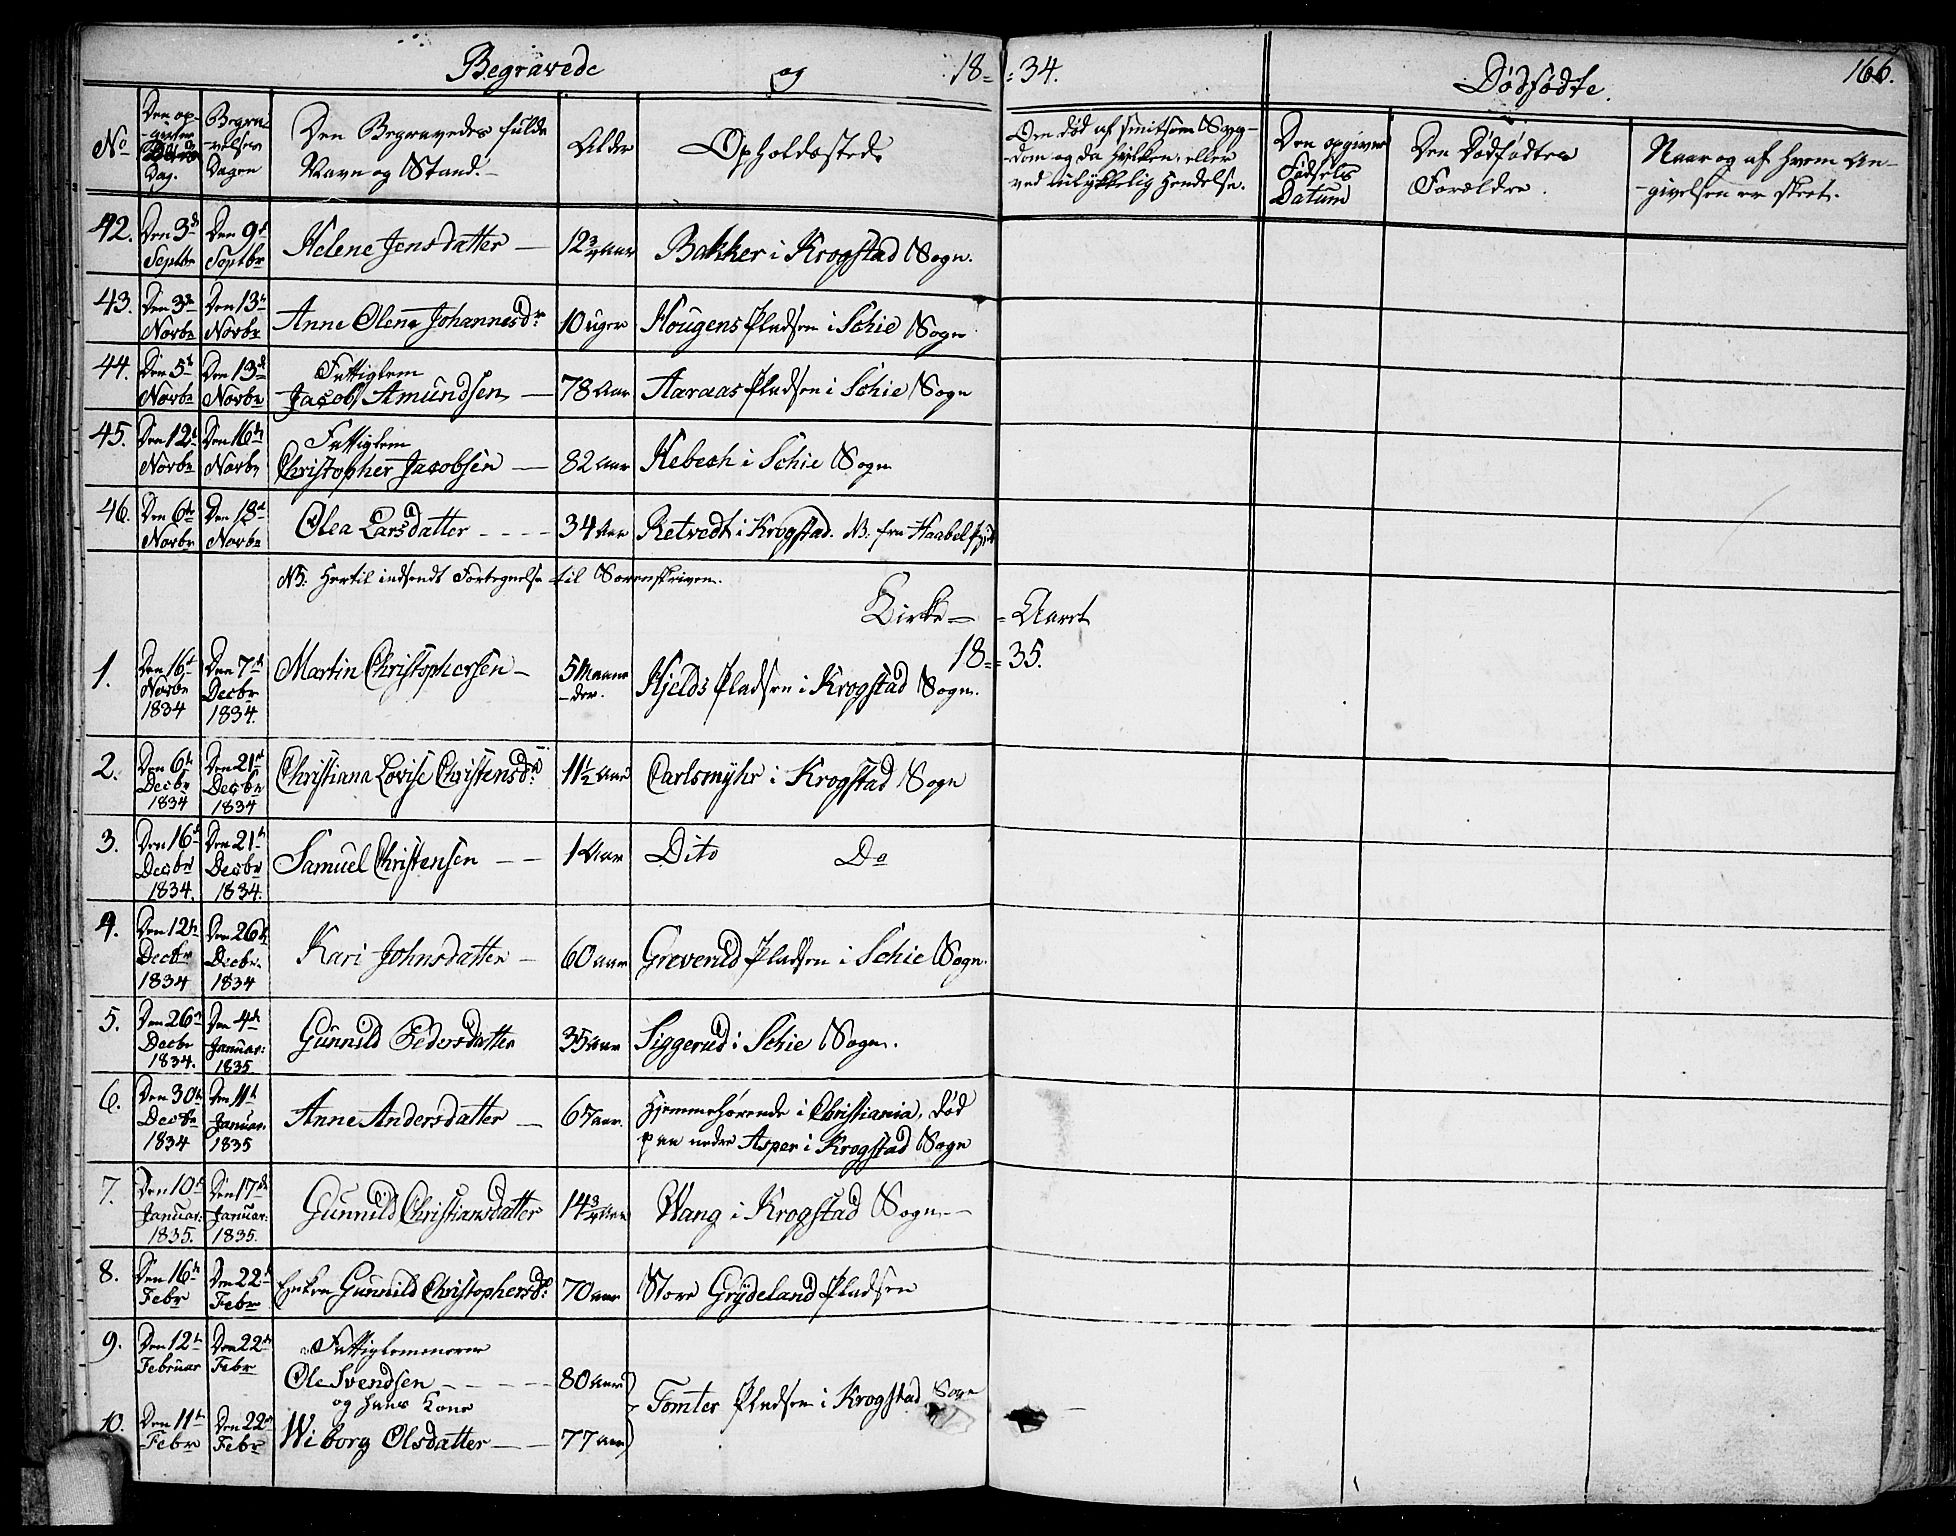 Begravede og 18=34. Dødfødte. 166.
No Den opgivne Døds Dag. Begravelses Dagen Den Begravedes fulde Navn og Stand. Alder Opholdssted. Om død af smitsom Sygdom og da hvilken, eller ved ulykkelig Hendelse. Den opgivne Fødsels Datum Den Dødfødtes Forældre. Naar og af hvem Angivelsen er skeet.
42. Den 3die Septbr Den 9de Septbr Helene Jensdatter — 12 3/4 Aar Bakker i Krogstad Sogn.
43. Den 3die Novbr Den 13de Novbr Anne Olene Johannesdr 10 uger Hougens Pladsen i Schie Sogn
44. Den 5te Novbr Den 13de Novbr Fattiglem Jacob Amundsen — 78 Aar Aaraas Pladsen i Schie Sogn
45. Den 12te Novbr Den 16de Novbr Fattiglem Christopher Jacobsen — 82 Aar Kebech i Schie Sogn
46. Den 6te Novbr Den 18de Novbr Olea Larsdatter - - - 34 Aar Retvedt i Krogstad. NB. fra Haabel
NB: Hertil indsendt Fortegnelse til Sorenskriveren.
Kirke = Aaret
18=35.
1. Den 16de Novbr 1834 Den 7de Decbr 1834. Martin Christophersen — 5 Maaneder. Hjelds Pladsen i Krogstad Sogn.
2. Den 6te Decbr 1834 Den 21de Decbr 1834 Christiana Lovise Christensdr 11 1/2 Aar Carlsmyhr i Krogstad Sogn
3. Den 16de Decbr 1834. Den 21de Decbr 1834. Samuel Christensen — — 1 Aar Dito Do
4. Den 12te Decbr 1834 Den 26de Decbr. 1834 Kari Johnsdatter — 60 Aar Greverud Pladsen i Schie Sogn.
5. Den 26de Decbr 1834. Den 4de Januar: 1835 Gunnild Pedersdatter 35 Aar Siggerud i Schie Sogn.
6. Den 30te Decbr 1834 Den 11te Januar. 1835 Anne Andersdatter — 67 Aar. Hjemmehørende i Christiania, død paa nedre Asper i Krogstad Sogn
7. Den 10de Januar: 1835. Den 17de Januar: 1835. Gunnild Christiansdatter 14 3/4 Aar Wang i Krogstad Sogn —
8. Den 16de Febr Den 22de Febr Enken Gunnild Christophersdr 70 Aar Store Grydeland Pladsen
9. Den 12te Februar Den 22de Febr Fattiglemmerne Ole Svendsen - - - 80 Aar
og hans Kone
10. Den 11te Febr Den 22de Febr Wiborg Olsdatter — — 77 Aar Tomter Pladsen i Krogstad Sogn